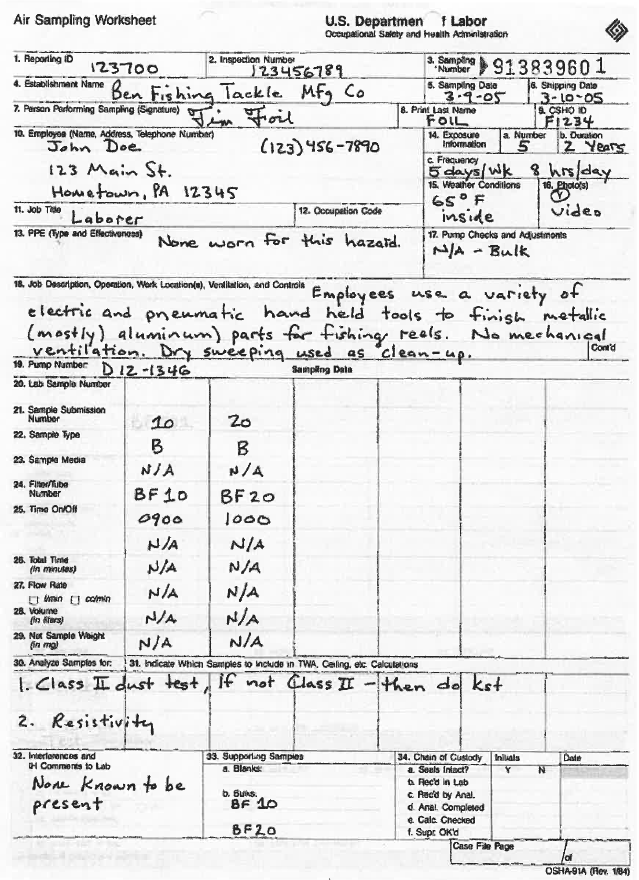 Air Sampling Worksheet
U.S. Departmen f Labor
Occupational Safety and Health Administration
1. Reporting ID
123700
2. Inspection Number
123456789
3. Sampling Number
913839601
4. Establishment Name Ben Fishing Tackle Mfg Co
5. Sampling Date
3-9-05
6. Shipping Date
3-10-05
7. Person Performing Sampling (Signature) Jim Foil
8. Print Last Name
FOIL
9. CSHO ID
F1234
10. Employee (Name, Address, Telephone Number)
John Doe (123) 456-7890
123 Main St.
Hometown, PA 12345
14. Exposure Information
a. Number
5
b. Duration
2 Years
c. Frequency
5 days/wk 8 hrs/day
15. Weather Conditions
65° F
inside
16. Photo(s)
Y
video
11. Job Title Laborer
12. Occupation Code
13. PPE (Type and Effectiveness) None worn for this hazard.
17. Pump Checks and Adjustments
N/A - Bulk
18. Job Description, Operation, Work Location(s), Ventilation, and Controls Employees use a variety of
electric and pneumatic hand held tools to finish metallic
(mostly) aluminum) parts for fishing reels. No mechanical
ventilation. Dry sweeping used as clean-up.
Cont'd
19. Pump Number: D12-1346 Sampling Data
20. Lab Sample Number
21. Sample Submission Number 10 20
22. Sample Type B B
23. Sample Media N/A N/A
24. Filter/Tube Number BF10 BF20
25. Time On/Off 0900 1000
N/A N/A
26. Total Time (in minutes) N/A N/A
27. Flow Rate N/A N/A
l/min cc/min
28. Volume (in liters) N/A N/A
29. Net Sample Weight (in mg) N/A N/A
30. Analyze Samples for: 31. Indicate Which Samples to Include in TWA, Ceiling, etc. Calculations
1. Class II dust test, if not Class II - then do kst
2. Resistivity
32. Interferences and IH Comments to Lab
None known to be
present
33. Supporting Samples
a. Blanks:
b. Bulks:
BF 10
BF20
34. Chain of Custody Initials Date
a. Seals Intact? Y N
b. Rec'd in Lab
c. Rec'd by Anal.
d. Anal. Completed
e. Calc. Checked
f. Supr. OK'd
Case File Page
/of
OSHA-91A (Rev. 1/84)